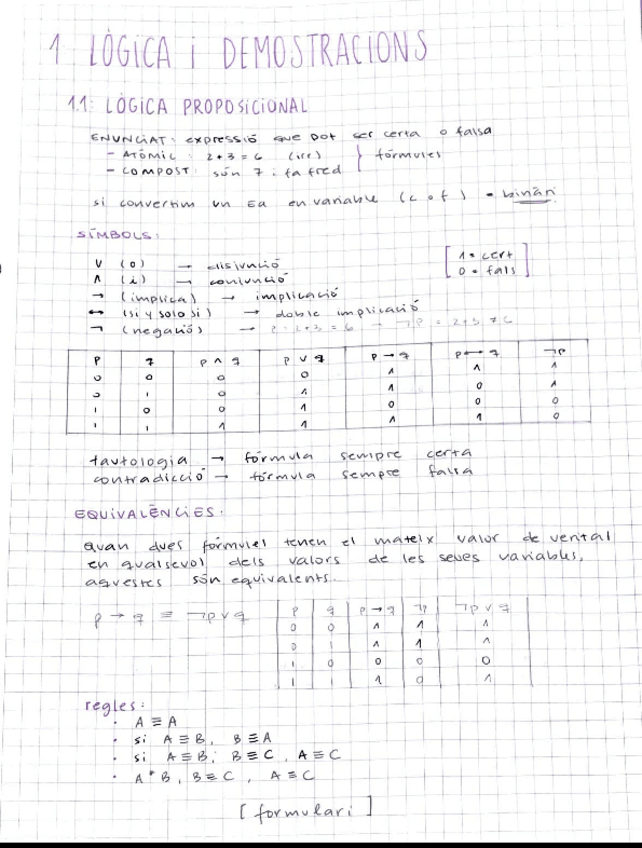 1 LÒGICA i DEMOSTRACIONS
1.1: LÒGICA PROPOSICIONAL
ENUNCIAT: expressió que pot ser certa o falsa
- ATÒMIC: 2+3=6 } fórmules
- COMPOST: són 7 i fa fred
si convertim un en variable (c o f) binari
SÍMBOLS:
∨ (o) → disjunció [ 1 = cert
∧ (i) → conjunció 0 = fals ]
→ (implica) → implicació
↔ (si y solo si) → doble implicació
¬ (negació) → P: 2+3=6 → ¬P = 2+3≠6
P q P ∧ q P ∨ q P → q P ↔ q ¬P
0 0 0 0 1 1 1
0 1 0 1 1 0 1
1 0 0 1 0 0 0
1 1 1 1 1 1 0
tautologia → fórmula sempre certa
contradicció → fórmula sempre falsa
EQUIVALÈNCIES:
quan dues fórmules tenen el mateix valor de veritat
en qualsevol dels valors de les seves variables,
aquestes són equivalents.
P → q ≡ ¬P ∨ q P q P → q ¬P ¬P ∨ q
0 0 1 1 1
0 1 1 1 1
1 0 0 0 0
1 1 1 0 1
regles:
· A ≡ A
· si A ≡ B, B ≡ A
· si A ≡ B; B ≡ C, A ≡ C
· B, B ≡ C, A ≡ C
[formulari]